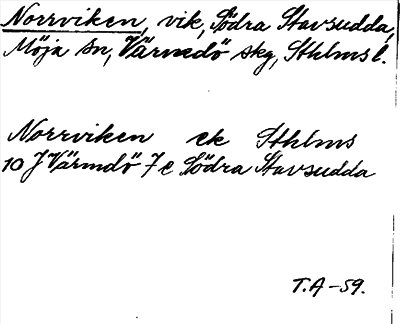 Norrviken, vik, Södra Stavsudda,
Möja sn, Värmdö skg, Sthlms l.
Norrviken ek Sthlms
10 J Värmdö 7 e Södra Stavsudda
T.A -59.